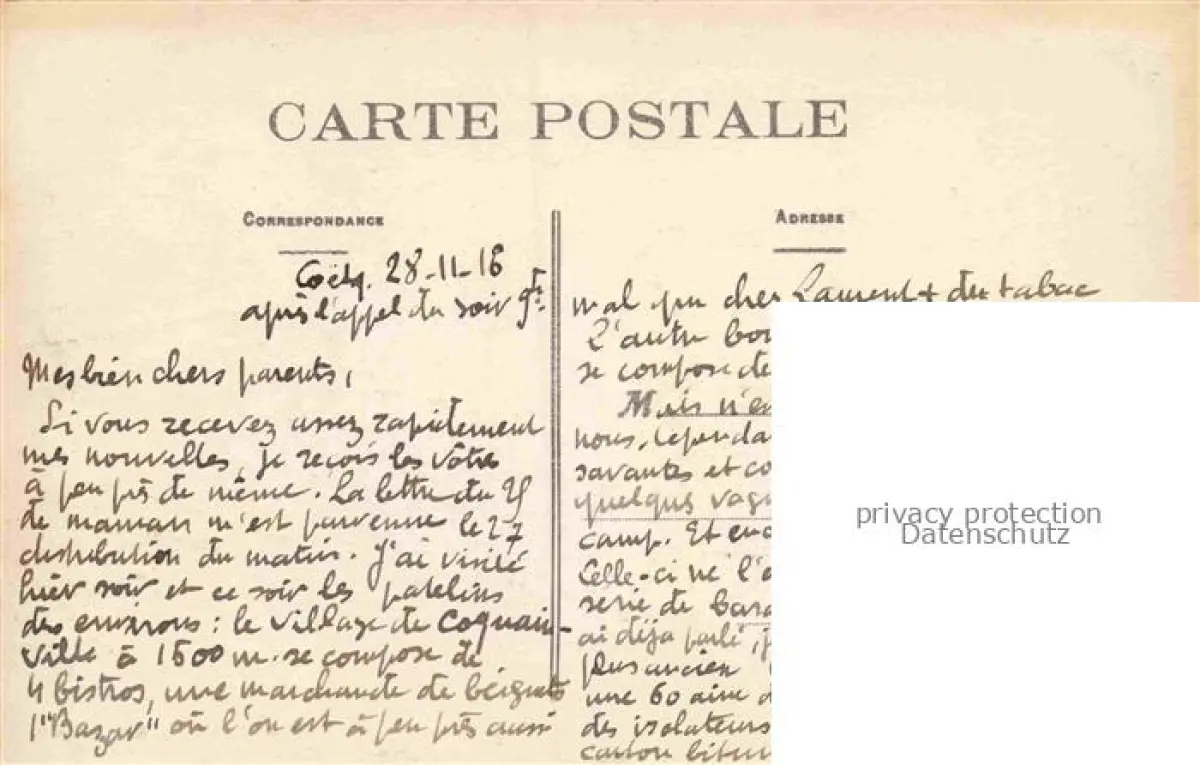 CARTE POSTALE
CORRESPONDANCE
Coëtq. 28-11-16
après l'appel du soir 9h.
Mes bien chers parents,
Si vous recevez assez rapidement
mes nouvelles, je reçois les vôtres
à peu près de même. La lettre du 25
de maman m'est parvenue le 27
distribution du matin. J'ai visité
hier soir et ce soir les patelins
des environs : le village de Coquain-
ville à 1500 m. se compose de
4 bistros, une marchande de beignets
1 "Bazar" où l'on est à peu près aussi
ADRESSE
mal que chez Laurent + du tabac
L'autre bou
se compose de
Mais n'en
nous, cependa
savantes et co
quelques vagu
camp. Et enc
Celle-ci ne l'a
serie de bara
ai déja parlé, j
plus ancien
une 60aine d
des isolateurs
carton bitum
privacy protection
Datenschutz